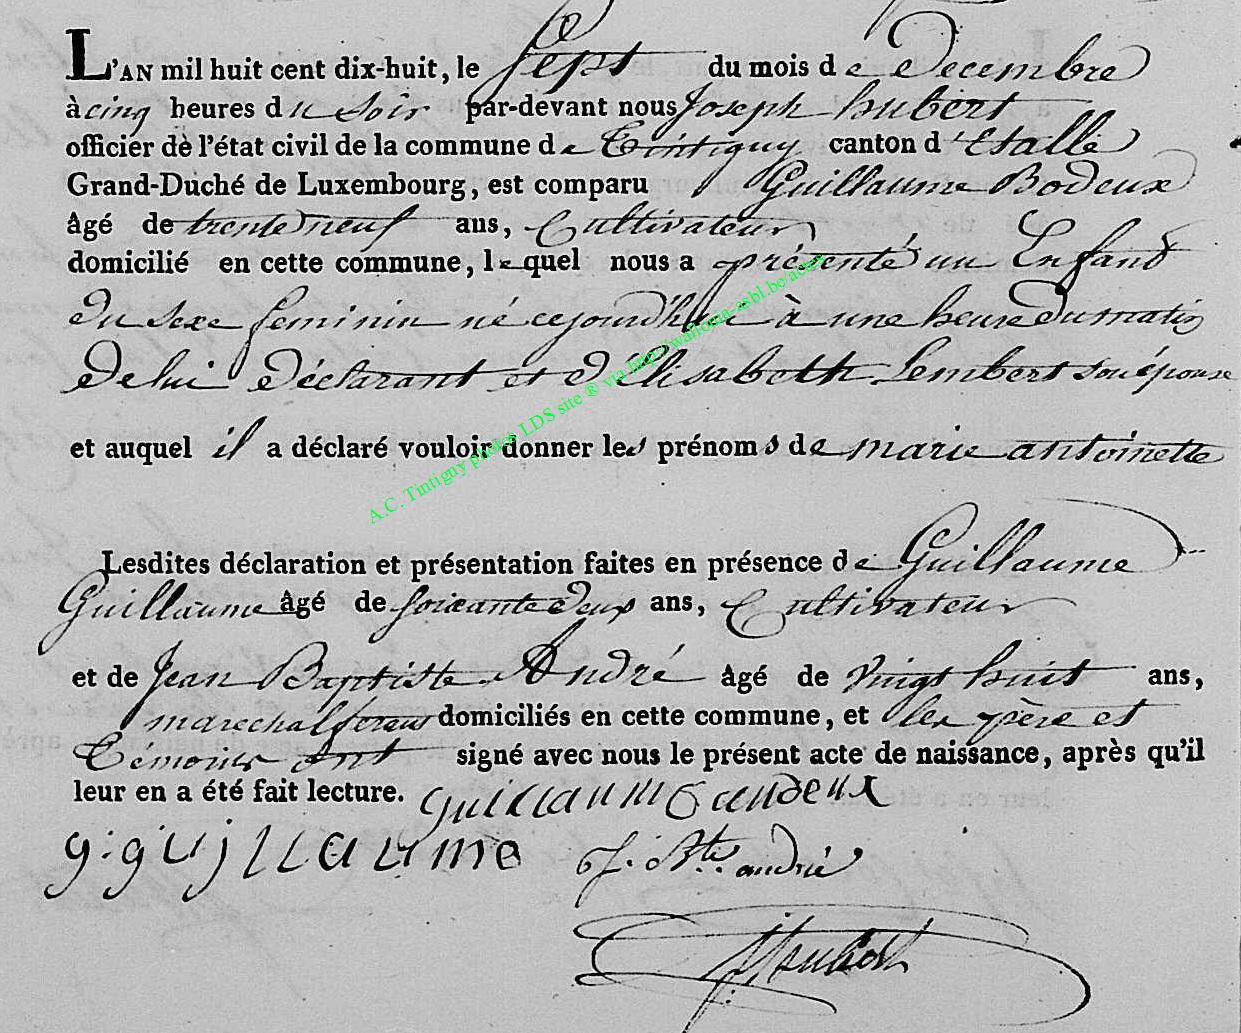 L'AN mil huit cent dix-huit, le Sept du mois de Decembre
à cinq heures du Soir par-devant nous Joseph hubert
officier de l'état civil de la commune de Tintigny canton d'Etalle
Grand-Duché de Luxembourg, est comparu Guillaume Bodeux
âgé de trente neuf ans, Cultivateur
domicilié en cette commune, lequel nous a présenté un Enfant
du sexe feminin né cejourd'hui à une heure du matin
de lui déclarant et d'Elisabeth Lembert son épouse
et auquel il a déclaré vouloir donner les prénoms de marie antoinette
A.C. Tintigny photos LDS site ® via http://walloma-asbl.be/actes
Lesdites déclaration et présentation faites en présence de Guillaume
Guillaume âgé de soixante deux ans, Cultivateur
et de Jean Baptiste André âgé de vingt huit ans,
marechal ferant domiciliés en cette commune, et les père et
Témoins ont signé avec nous le présent acte de naissance, après qu'il
leur en a été fait lecture. Guillaume
g:gujllaume J. Bte. andré